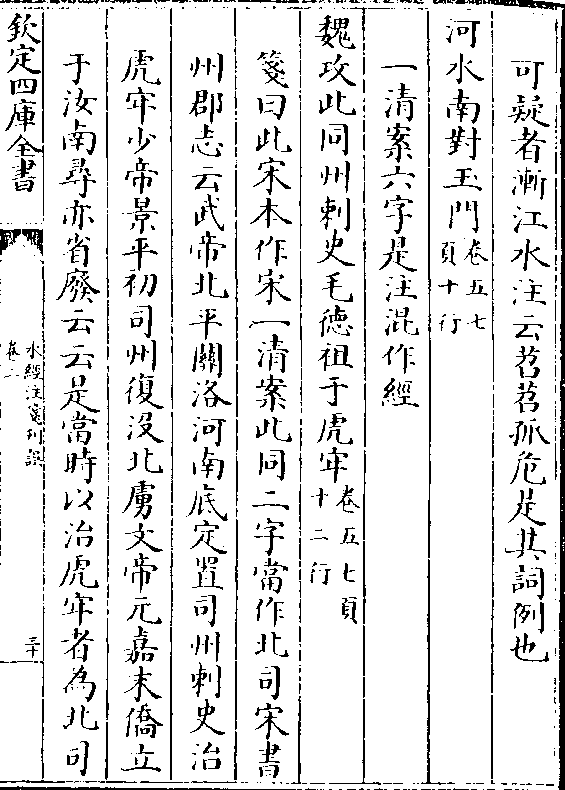 可疑者漸江水注云苕苕孤危是其詞例也
河水南對玉門卷五七頁十行
一清案六字是注混作經
魏攻此同州刺史毛德祖于虎牢卷五七頁十二行
箋曰此宋本作宋一清案此同二字當作北司宋書
州郡志云武帝北平關洛河南底定置司州刺史治
虎牢少帝景平初司州復没北虜文帝元嘉末僑立
于汝南尋亦省廢云云是當時以治虎牢者為北司
欽定四庫全書
水經注箋刊誤
卷二
三十